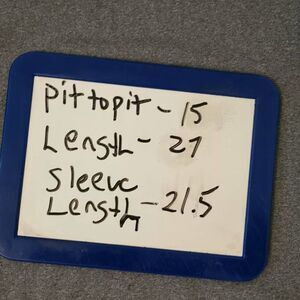 Pit to pit - 15
Length - 27
Sleeve
Length - 21.5